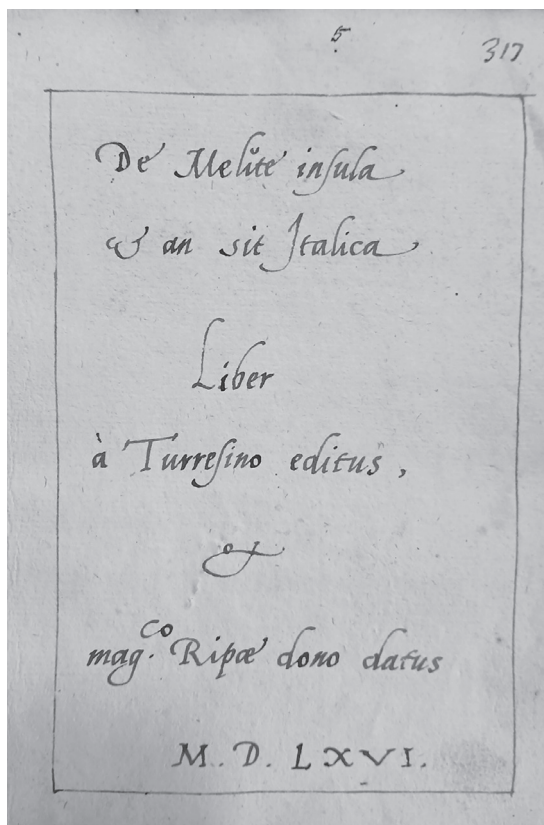 5
317
De Melite insula
& an sit Italica
Liber
à Turresino editus,
&
mag.co Ripæ dono datus
M. D. LXVI.